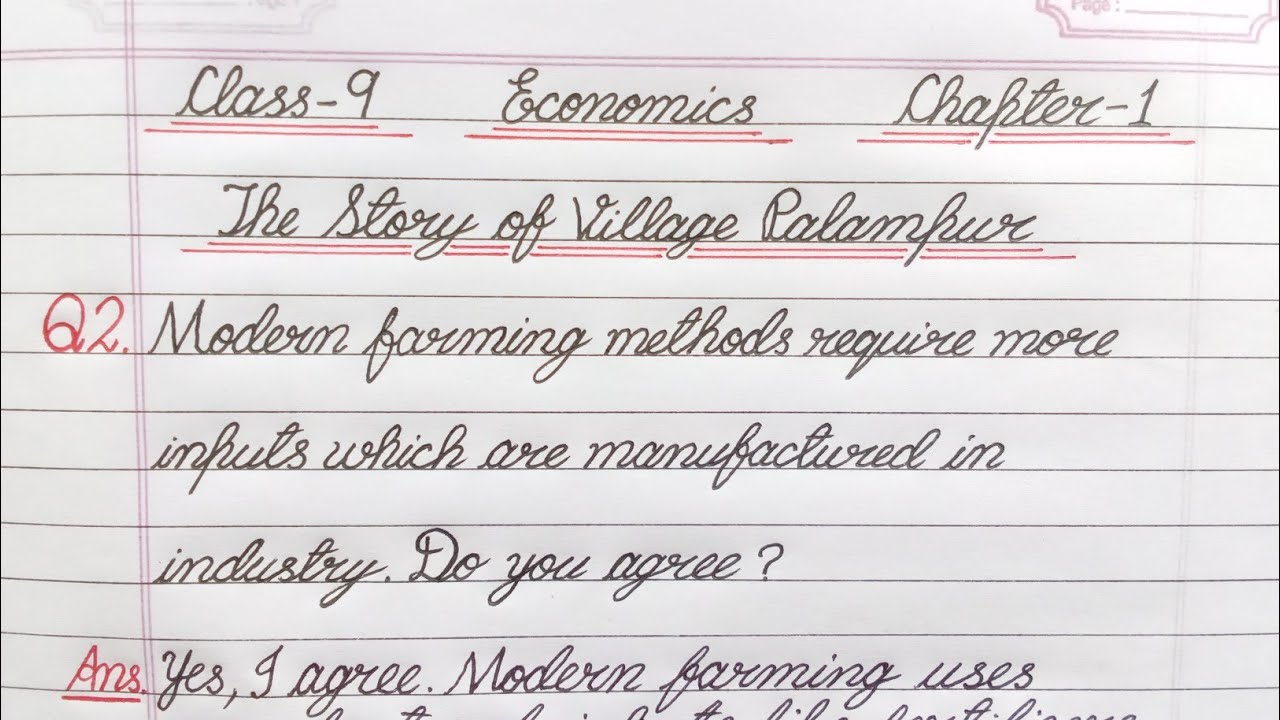 Page :
Class-9 Economics Chapter-1
The Story of Village Palampur
Q2. Modern farming methods require more
inputs which are manufactured in
industry. Do you agree?
Ans. Yes, I agree. Modern farming uses